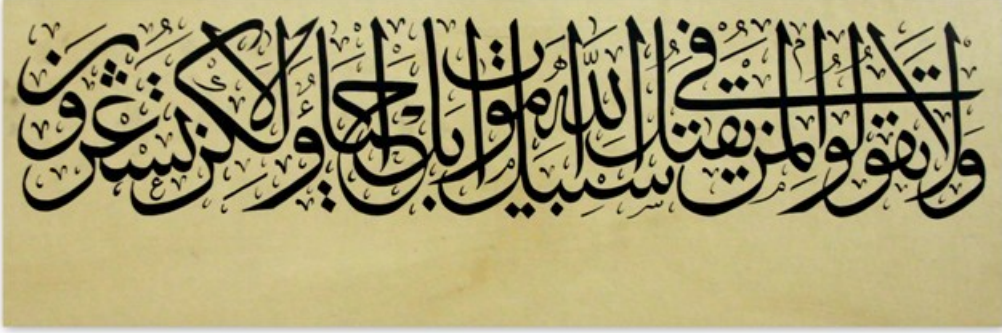 ولا تقولوا لمن يقتل في سبيل الله اموات بل احياء ولكن لا تشعرون